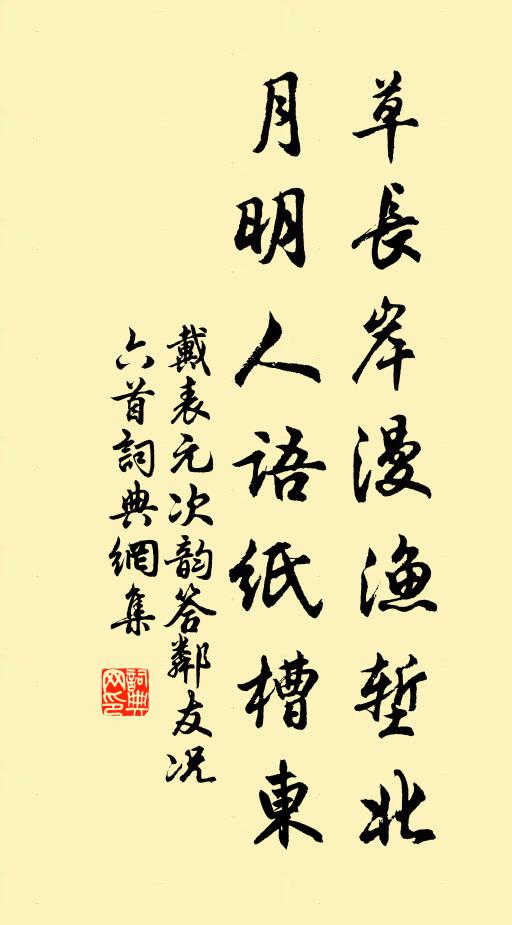 草長岸漫漁塹北
月明人語紙槽東
戴表元次韵答鄰友况
六首詞典網集
詞典
网印